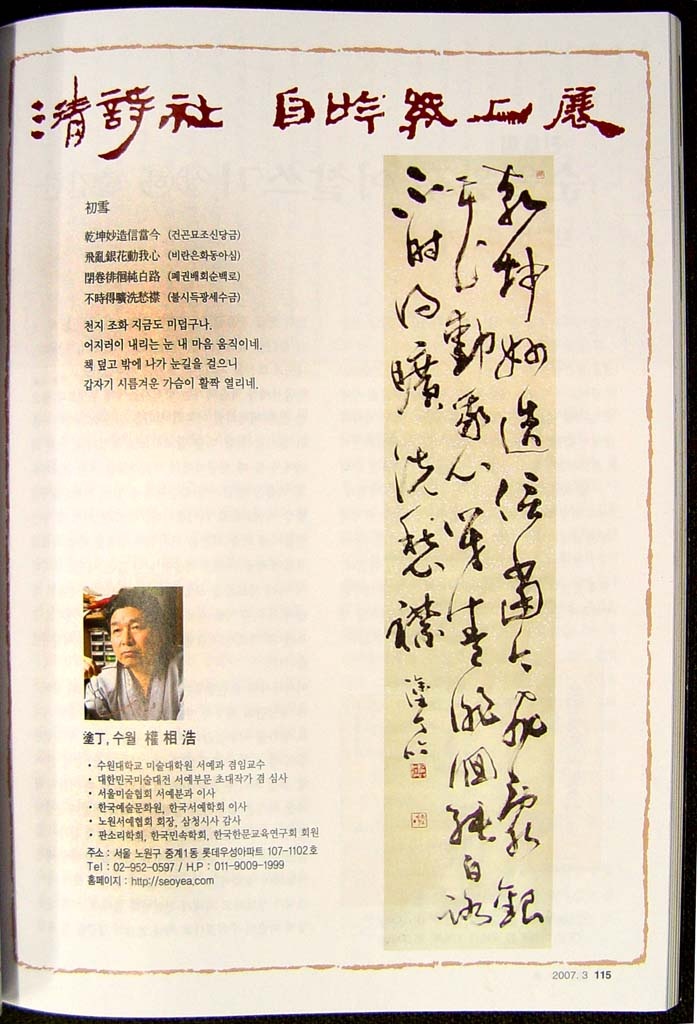 清詩社 自吟
初雪
乾坤妙造信當今 (건곤묘조신당금)
飛亂銀花動我心 (비란은화동아심)
閉卷徘徊純白路 (폐권배회순백로)
不時得曠洗愁襟 (불시득광세수금)
천지 조화 지금도 미덥구나.
어지러이 내리는 눈 내 마음 움직이네.
책 덮고 밖에 나가 눈길을 걸으니
갑자기 시름겨운 가슴이 활짝 열리네.
乾坤妙造信當今飛亂銀
花動我心閉卷徘徊純白路
不時得曠洗愁襟
塗丁, 수월 權相浩
• 수원대학교 미술대학원 서예과 겸임교수
• 대한민국미술대전 서예부문 초대작가 겸 심사
• 서울미술협회 서예분과 이사
• 한국예술문화원, 한국서예학회 이사
• 노원서예협회 회장, 삼청시사 감사
• 판소리학회, 한국민속학회, 한국한문교육연구회 회원
주소 : 서울 노원구 중계1동 롯데우성아파트 107-1102호
Tel : 02-952-0597 / H.P : 011-9009-1999
홈페이지 : http://seoyea.com
2007. 3 115